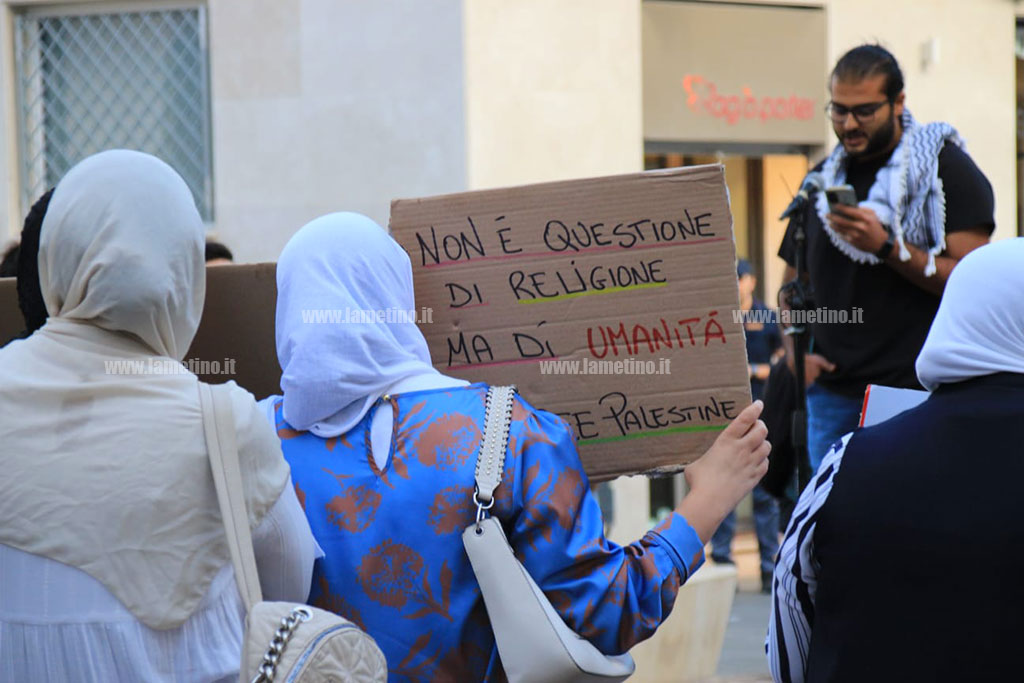 NON É QUESTIONE
DI RELIGIONE
MA DI UMANITÁ
PALESTINE
www.lametino.it
www.lametino.it
www.lametino.it
www.lametino.it